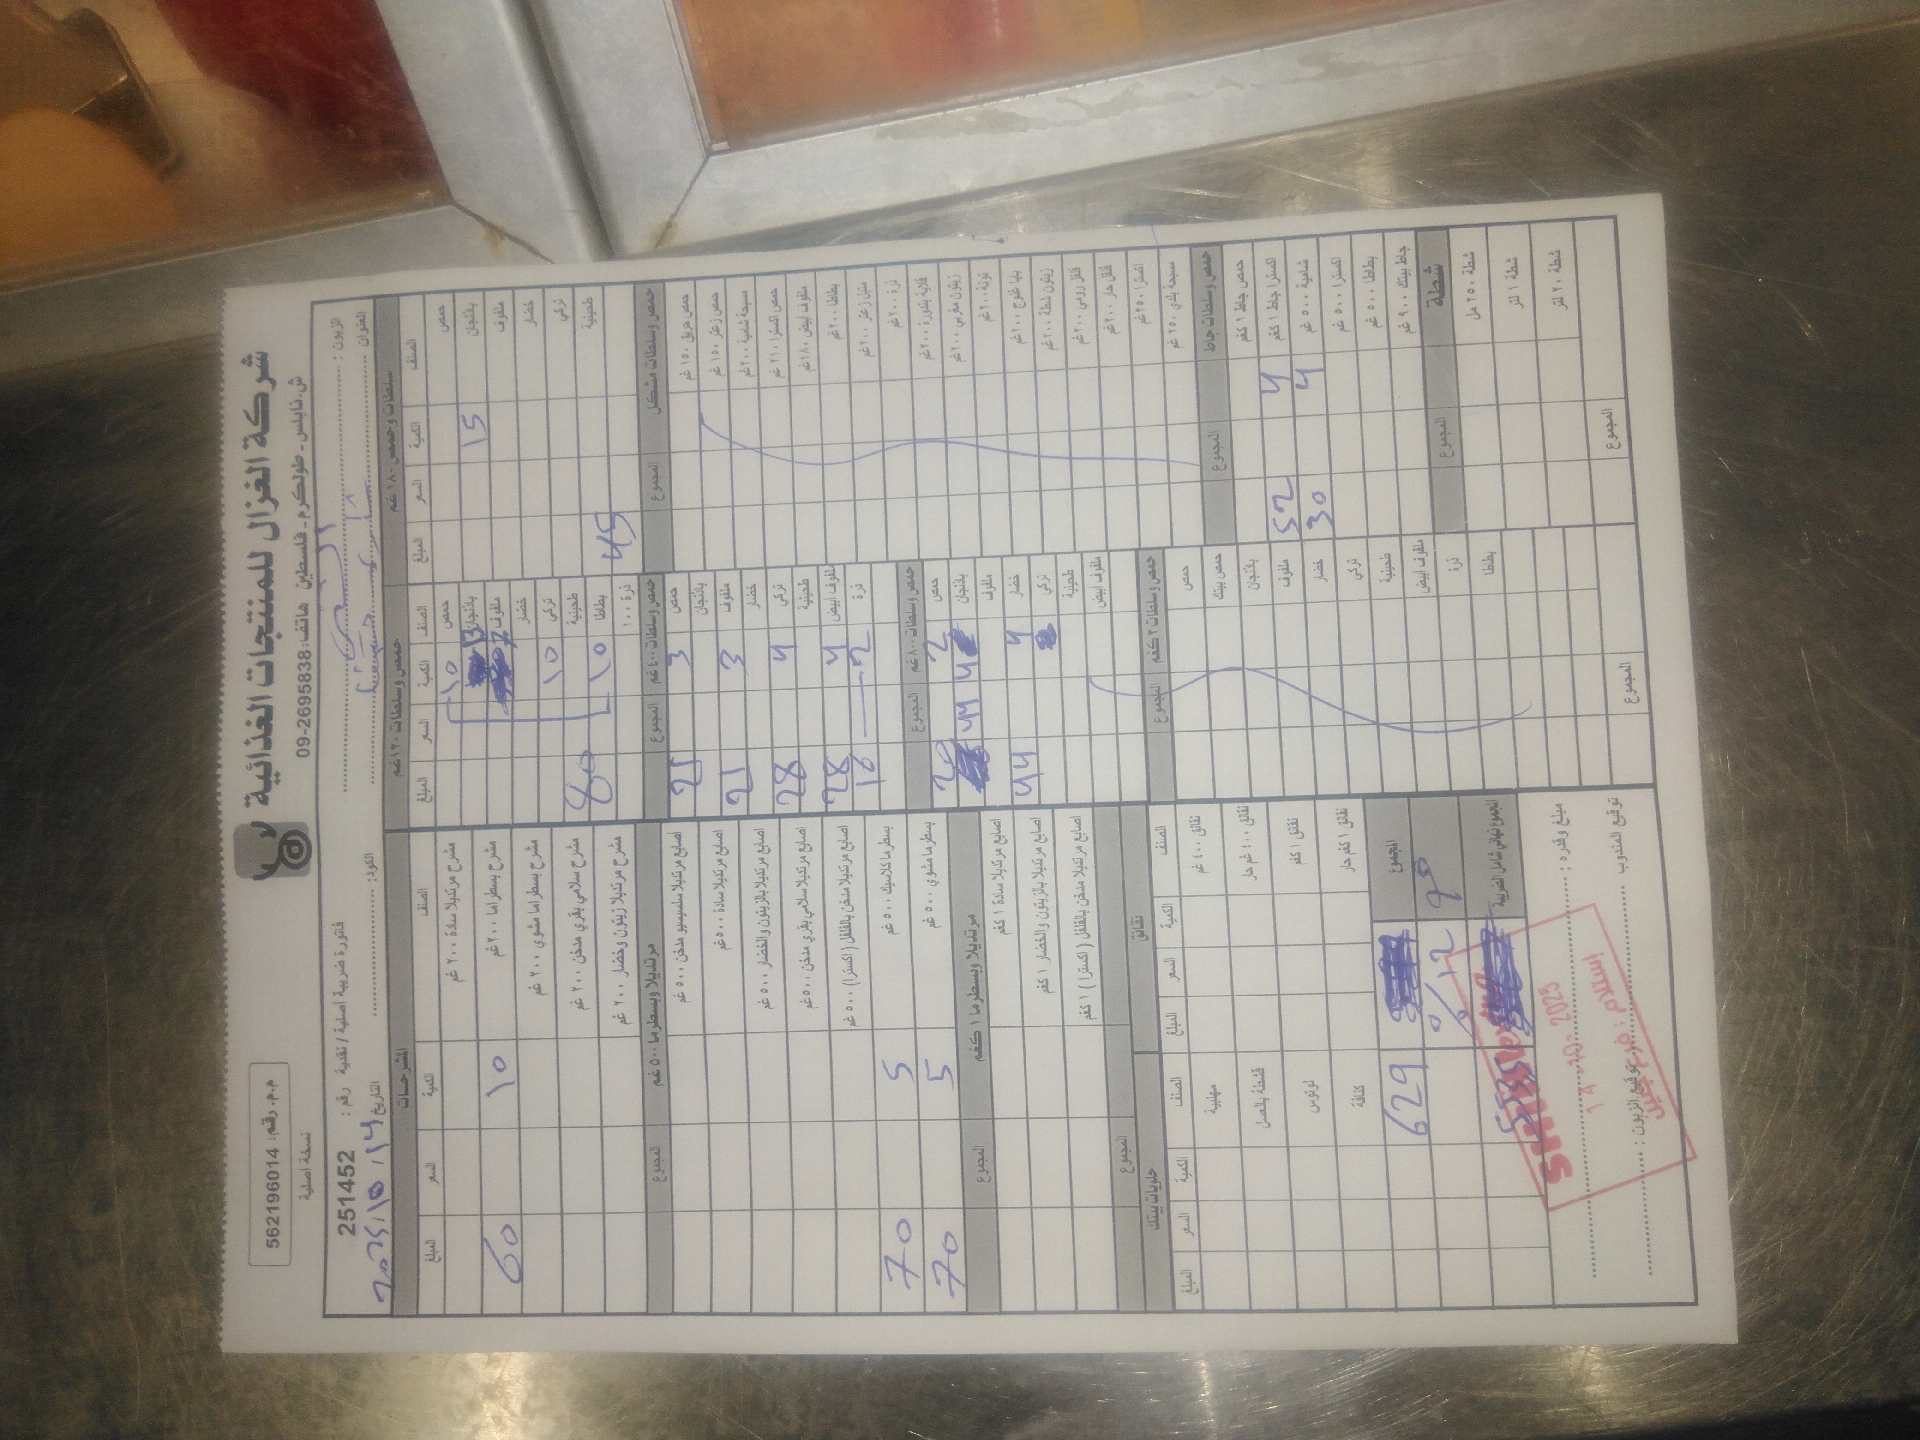 شركة الغزال للمنتجات الغذائية
ش.نابلس - طولكرم - فلسطين هاتف: 09-2695838
م.م. رقم: 562196014
نسخة أصلية
الزبون :
العنوان
فاتورة ضريبية أصلية / نقدية رقم : 251452
الكود:
التاريخ 2025/10/14
سلطات وحمص ١٨٠ غم
الصنف الكمية السعر المبلغ
حمص
باذنجان 15
ملفوف
خضار
تركي
طحينية 45
حمص وسلطات مشكل المجموع
حمص حريق ١٥٠ غم
حمص زعتر ١٥٠ غم
مسبحة شامية ٢٠٠ غم
حمص اكسترا ٢١٠ غم
ملفوف ابيض ١٨٠ غم
بطاطا ٢٠٠ غم
متبل زعتر ٢٠٠ غم
ذرة ٢٠٠ غم
قلاية بندورة ٢٠٠ غم
زيتون مغربي ٢٠٠ غم
تونة ٢٠٠ غم
بابا غنوج ٢٠٠ غم
زيتون شطة ٢٠٠ غم
فلفل رومي ٢٠٠ غم
فلفل حار ٢٠٠ غم
اكسترا ٢٥٠ غم
مسبحة بلدي ٢٥٠ غم
حمص وسلطات جاط المجموع
حمص جاط ١ كغم
اكسترا جاط ١ كغم 4 52
شامية ٥٠٠ غم 4 30
اكسترا ٥٠٠ غم
بطاطا ٥٠٠ غم
جاط بيتك ٩٠٠ غم
شطة المجموع
شطة ٢٥٠ مل
شطة ١ لتر
شطة ٢٠ لتر
المجموع
حمص وسلطات ١٢٠ غم
الصنف الكمية السعر المبلغ
حمص 10
باذنجان
ملفوف
خضار
تركي 10
طحينية 80
بطاطا 10
ذرة ١٠٠
حمص وسلطات ٤٠٠ غم المجموع
حمص 3 21
باذنجان
ملفوف 3 21
خضار
تركي 4 28
طحينية
ملفوف ابيض 4 28
ذرة 2 18
حمص وسلطات ٨٠٠ غم المجموع
حمص 2 20
باذنجان 4 44
ملفوف
خضار 4 44
تركي
طحينية
ملفوف ابيض
حمص وسلطات ٣ كغم المجموع
حمص
حمص بيتك
باذنجان
ملفوف
خضار
تركي
طحينية
ملفوف ابيض
ذرة
بطاطا
المجموع
المشرحات
الصنف الكمية السعر المبلغ
مشرح مرتديلا سادة ٢٠٠ غم
مشرح بسطراما ٢٠٠ غم 10 60
مشرح بسطراما مشوي ٢٠٠ غم
مشرح سلامي بقري مدخن ٢٠٠ غم
مشرح مرتديلا زيتون وخضار ٢٠٠ غم
مرتديلا وبسطرما ٥٠٠ غم المجموع
اصابع مرتديلا سلسيسيو مدخن ٥٠٠ غم
اصابع مرتديلا سادة ٥٠٠ غم
اصابع مرتديلا بالزيتون والخضار ٥٠٠ غم
اصابع مرتديلا سلامي بقري مدخن ٥٠٠ غم
اصابع مرتديلا مدخن بالفلفل (اكسترا) ٥٠٠ غم
بسطرما كلاسيك ٥٠٠ غم 5 70
بسطرما مشوي ٥٠٠ غم 5 70
مرتديلا وبسطرما ١ كغم المجموع
اصابع مرتديلا سادة ١ كغم
اصابع مرتديلا بالزيتون والخضار ١ كغم
اصابع مرتديلا مدخن بالفلفل (اكسترا) ١ كغم
المجموع
نقانق
الصنف الكمية السعر المبلغ
نقانق ٤٠٠ غم
نقانق ٤٠٠ غم حار
نقانق ١ كغم
نقانق ١ كغم حار
حلويات بيتك
الصنف الكمية السعر المبلغ
مهلبية
قشطة بالعسل
لوتوس
كنافة
المجموع 629
% 12
المجموع نهائي شامل الضريبة
مبلغ وقدره :
توقيع المندوب
توقيع الزبون :
14-10-2025